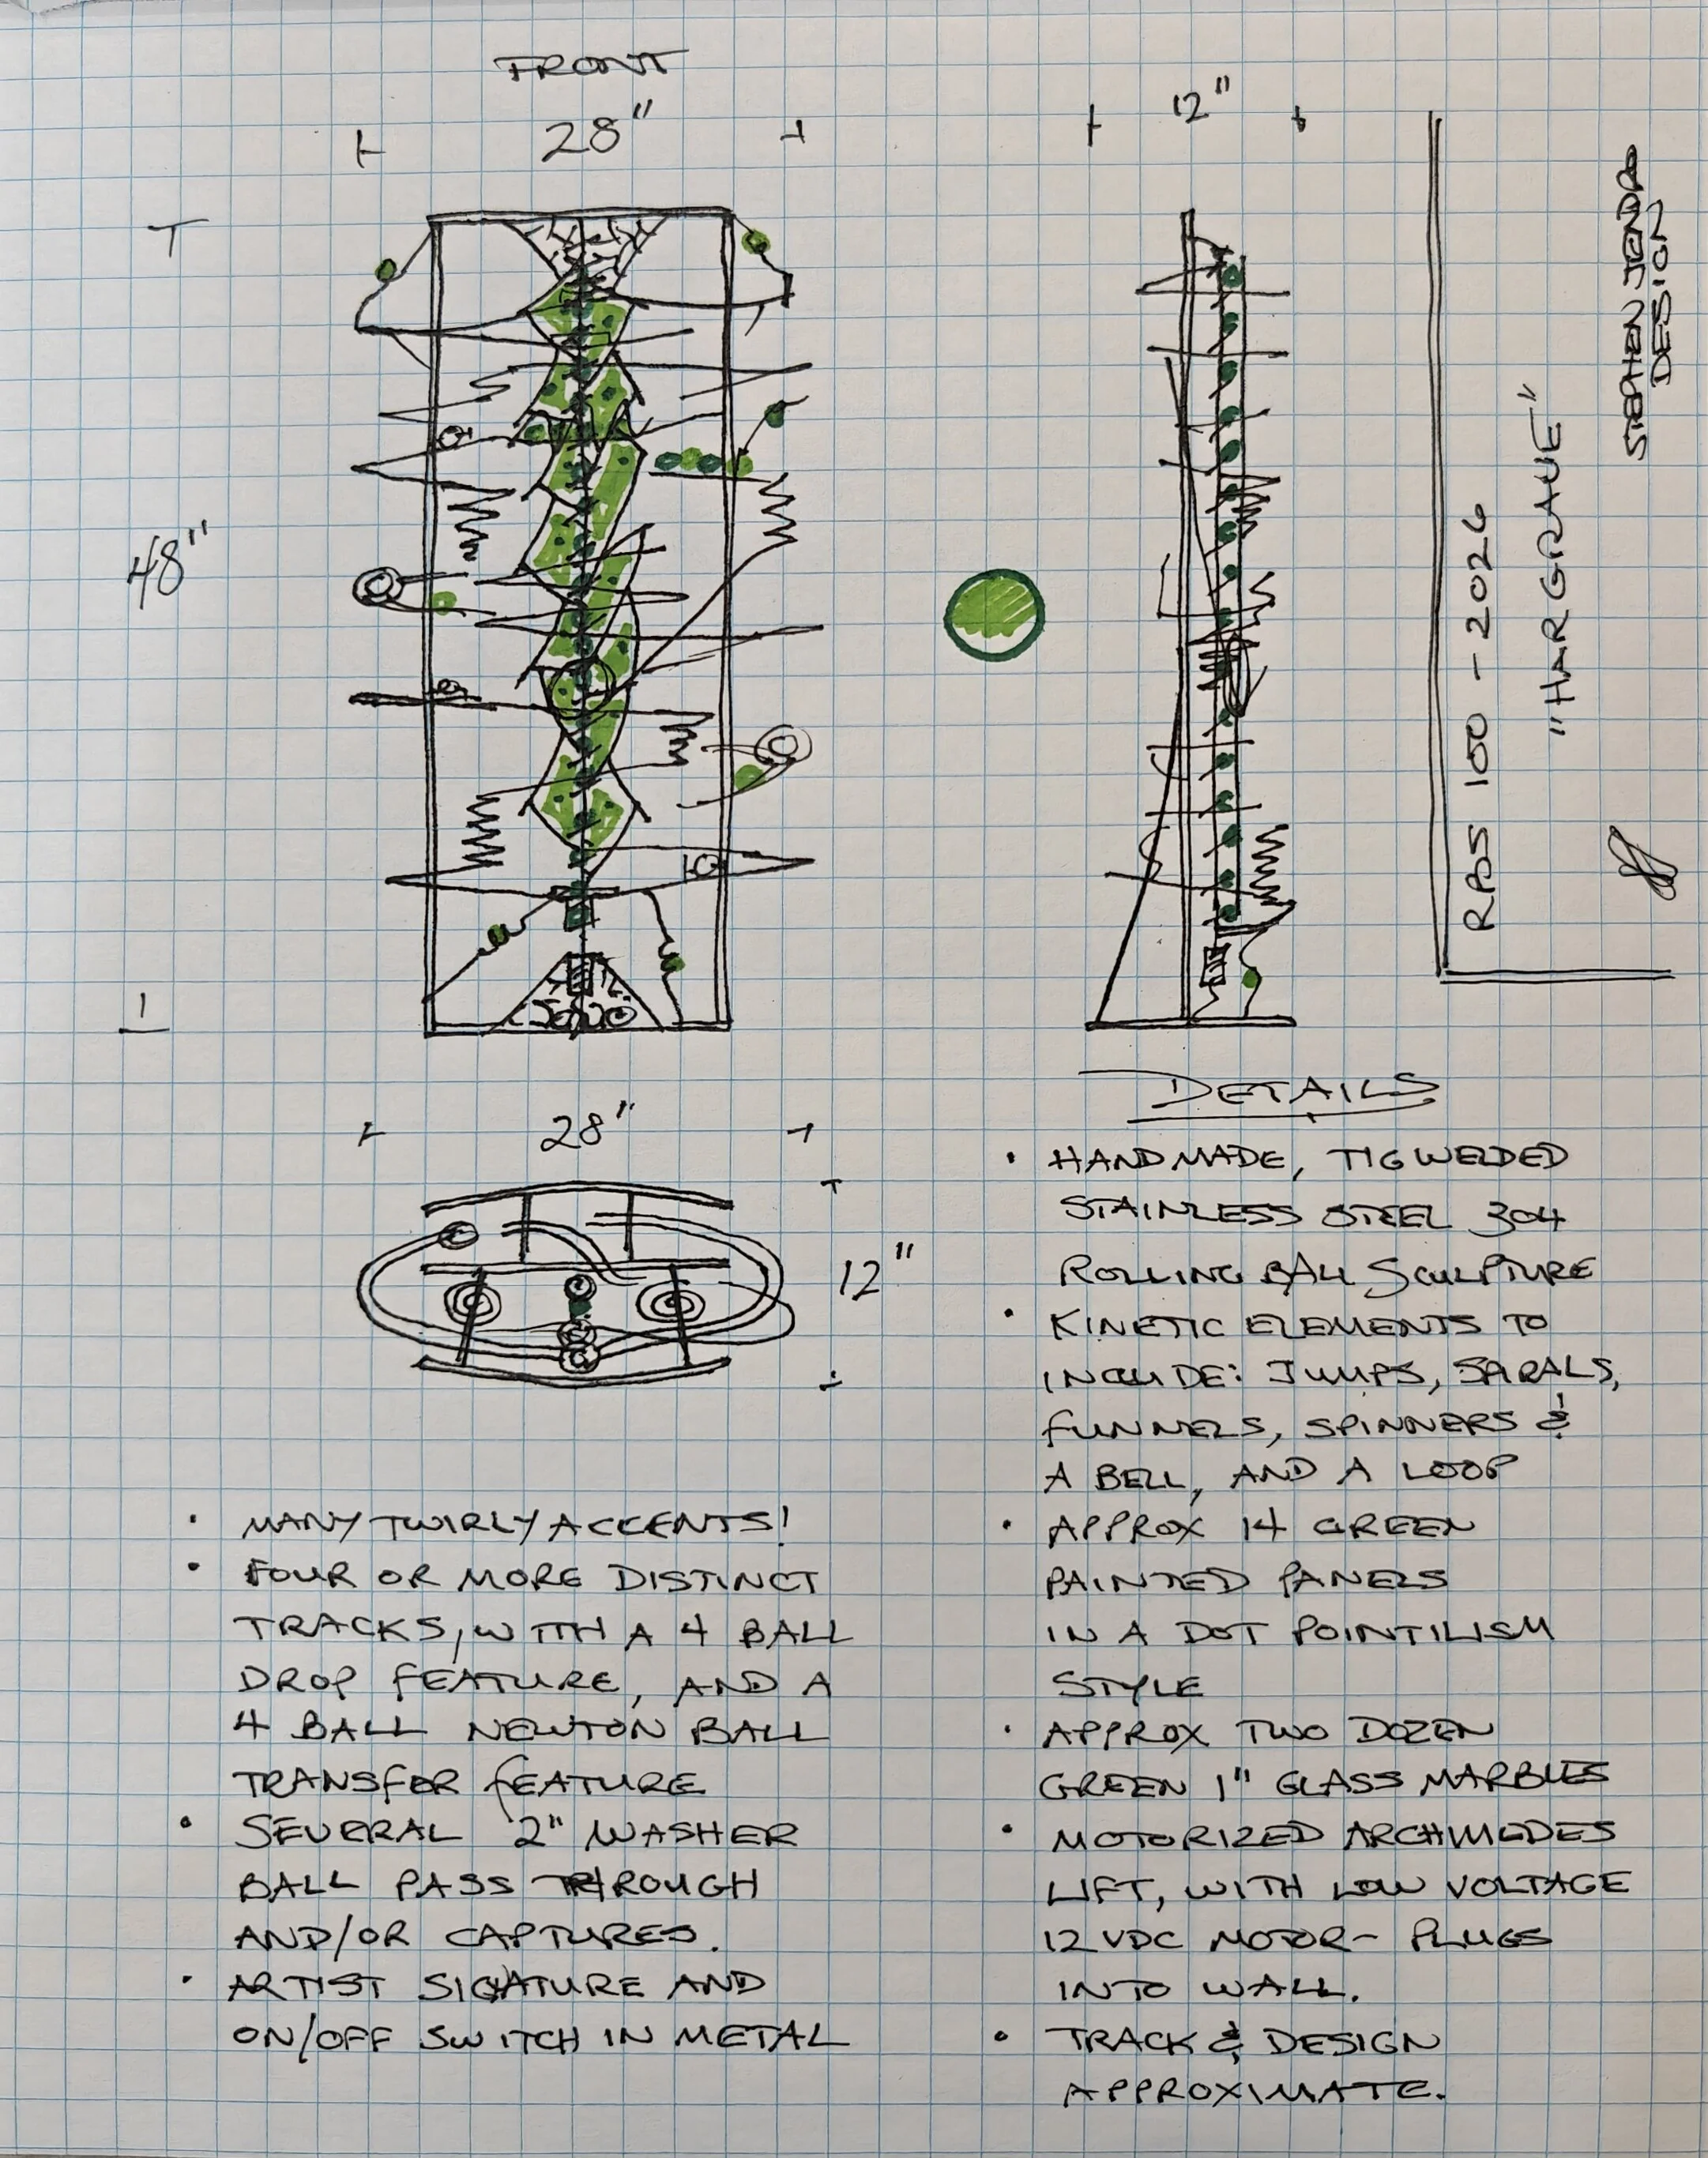 FRONT
28"
12"
48"
STEPHEN JENDRO
DESIGN
"HARGRAVE"
RBS 100 - 2026
28"
12"
DETAILS
• HANDMADE, TIG WELDED
STAINLESS STEEL 304
ROLLING BALL SCULPTURE
• KINETIC ELEMENTS TO
INCLUDE: JUMPS, SPIRALS,
FUNNELS, SPINNERS &
A BELL, AND A LOOP
• APPROX 14 GREEN
PAINTED PANELS
IN A DOT POINTILISM
STYLE
• APPROX TWO DOZEN
GREEN 1" GLASS MARBLES
• MOTORIZED ARCHIMEDES
LIFT, WITH LOW VOLTAGE
12 VDC MOTOR - PLUGS
INTO WALL.
• TRACK & DESIGN
APPROXIMATE.
• MANY TWIRLY ACCENTS!
• FOUR OR MORE DISTINCT
TRACKS, WITH A 4 BALL
DROP FEATURE, AND A
4 BALL NEWTON BALL
TRANSFER FEATURE
• SEVERAL 2" WASHER
BALL PASS THROUGH
AND/OR CAPTURES.
• ARTIST SIGNATURE AND
ON/OFF SWITCH IN METAL